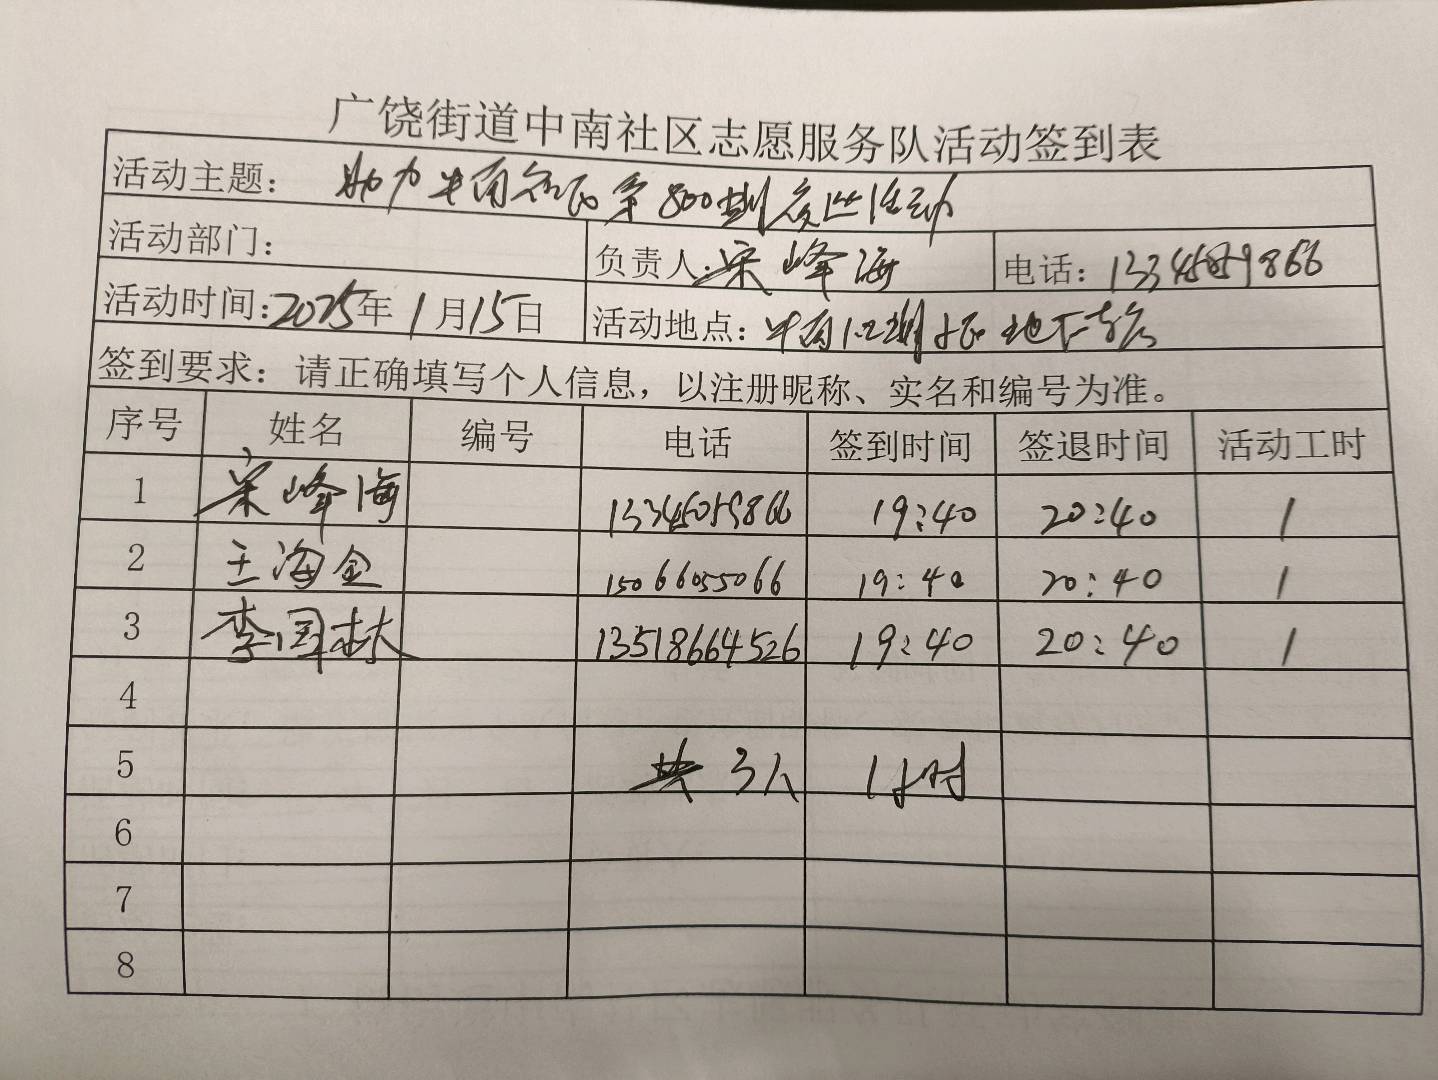 广饶街道中南社区志愿服务队活动签到表
活动主题： 助力中南 800 活动
活动部门： 负责人：宋峰海 电话：13345059866
活动时间：2025年1月15日 活动地点：中南 地下
签到要求：请正确填写个人信息，以注册昵称、实名和编号为准。
序号 姓名 编号 电话 签到时间 签退时间 活动工时
1 宋峰海 13345059866 19:40 20:40 1
2 王海金 15066055066 19:40 20:40 1
3 李国林 13518664526 19:40 20:40 1
4
5 共3人 1小时
6
7
8